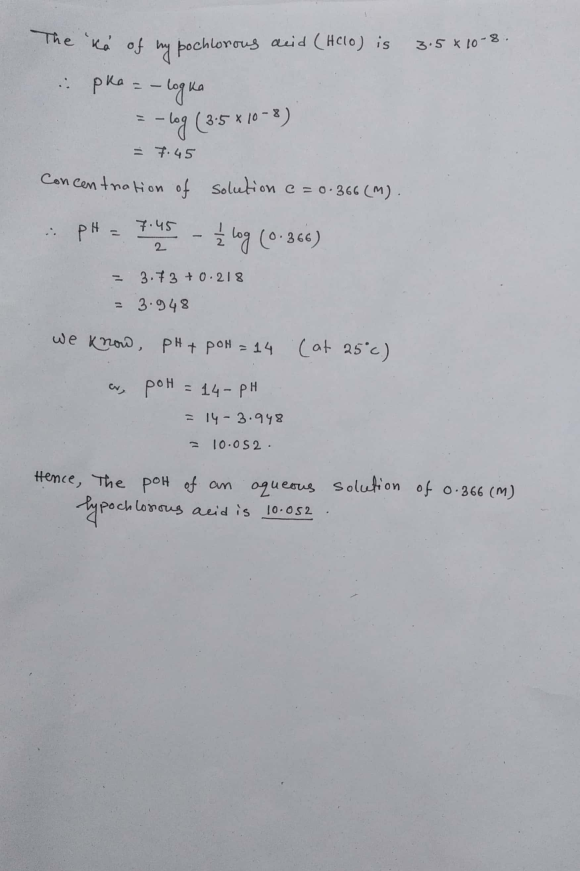 The 'Ka' of hypochlorous acid (HClO) is 3.5 x 10-8.
∴ pKa = - log Ka
= - log (3.5 x 10-8)
= 7.45
Concentration of solution c = 0.366 (M).
∴ pH = 7.45/2 - 1/2 log (0.366)
= 3.73 + 0.218
= 3.948
we know, pH + pOH = 14 (at 25°c)
or, pOH = 14 - pH
= 14 - 3.948
= 10.052.
Hence, The pOH of an aqueous solution of 0.366 (M)
hypochlorous acid is 10.052.